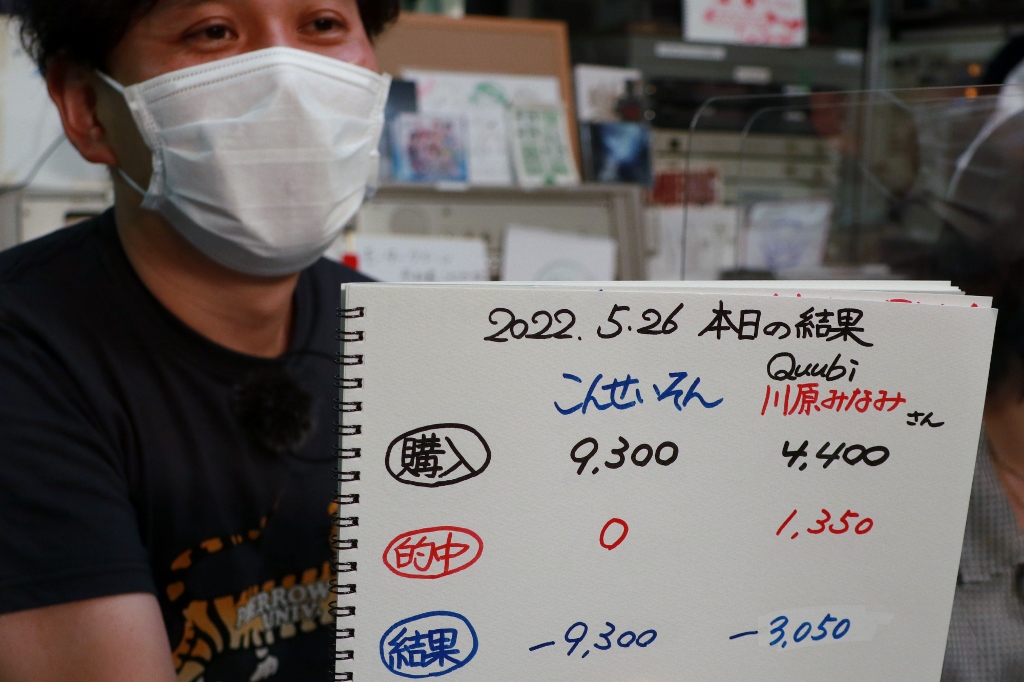 2022. 5.26 本日の結果
Quubi
こんせいそん 川原みなみさん
購入 9,300 4,400
的中 0 1,350
結果 -9,300 -3,050